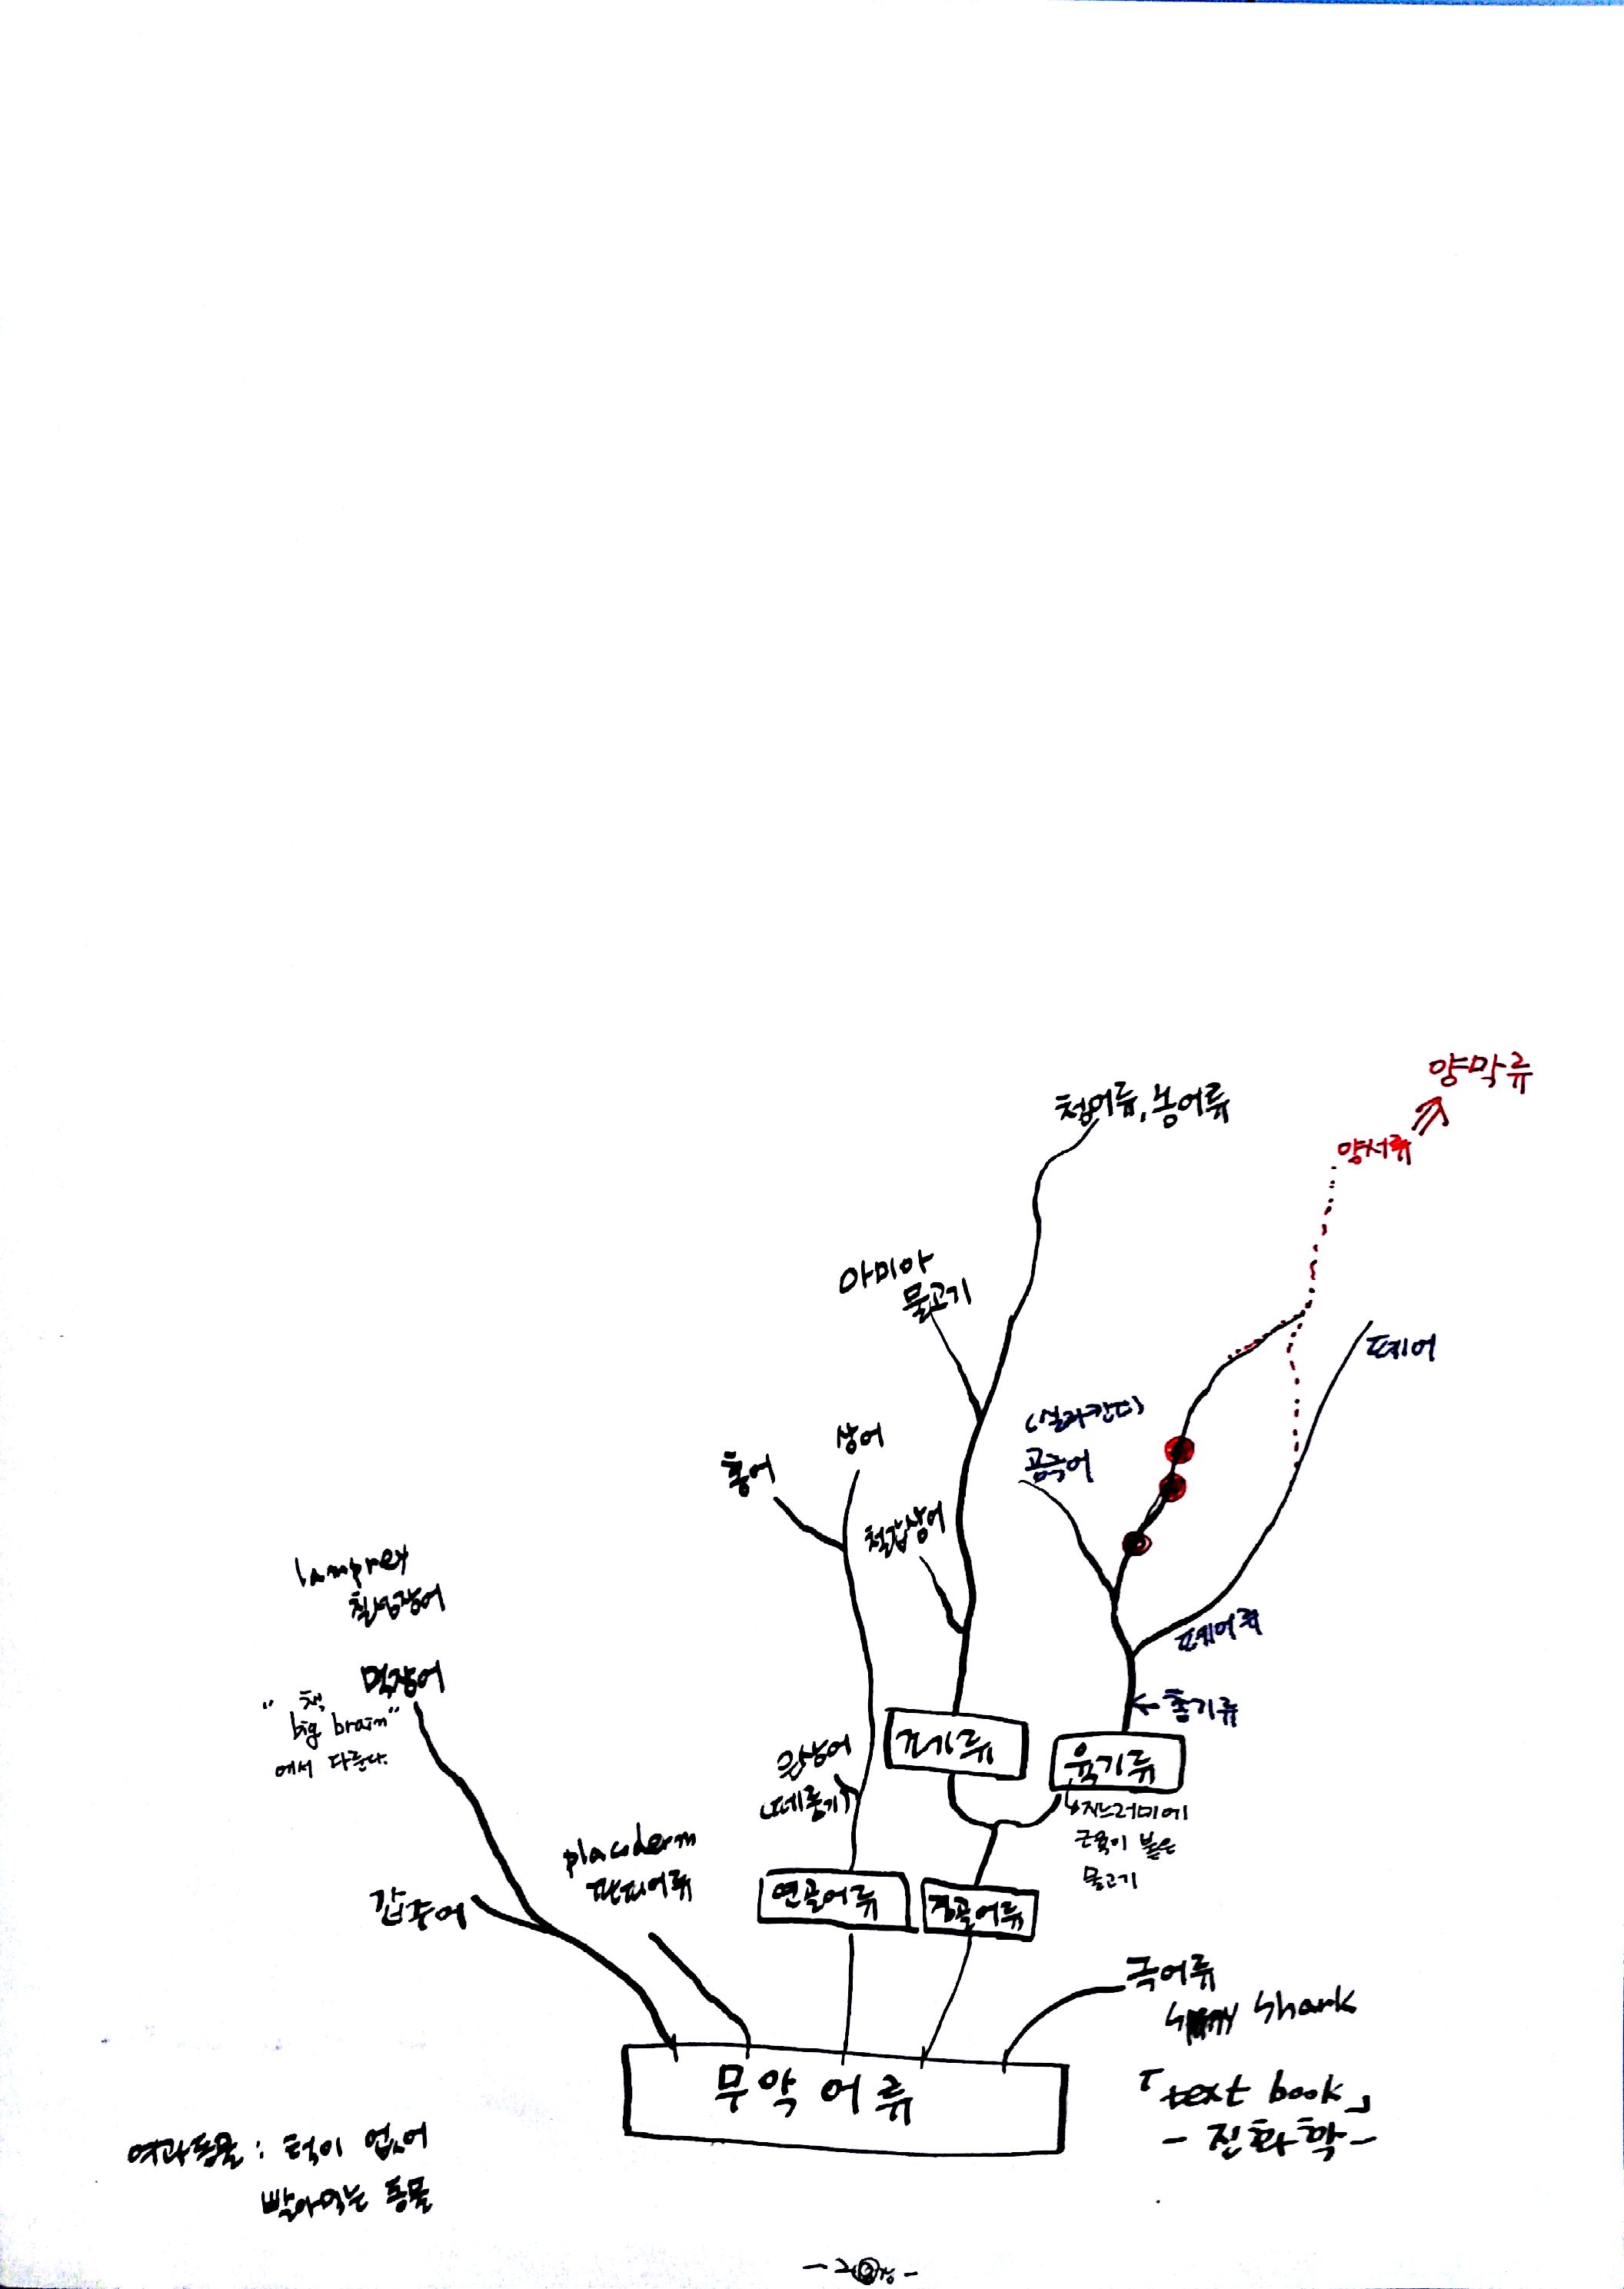 양막류
양서류
청어류, 농어류
아미아
물고기
폐어
(실라칸디)
곰극어
상어
홍어
철갑상어
lamprey
칠성장어
폐어류
먹장어
"책,
big brain"
에서 다룬다.
←총기류
육기류
지느러미에
근육이 붙은
물고기
placoderm
판피어류
연골어류
경골어류
갑주어
극어류
shark
무악어류
「text book」
- 진화학 -
여과동물 : 턱이 없어
빨아먹는 동물